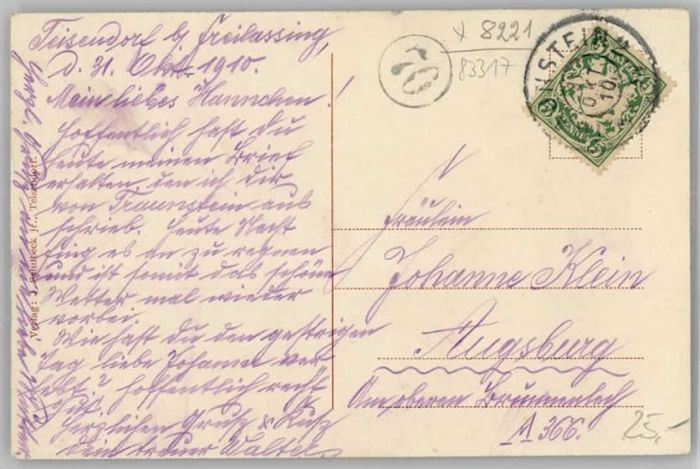 Teisendorf b/ Freilassing,
d. 31. Okt. 1910.
Mein liebes Hannchen!
Hoffentlich hast du
heute meinen Brief
erhalten, den ich dir
von Traunstein aus
schrieb. Heute Nacht
fing es an zu regnen
und ist somit das schöne
Wetter mal wieder
vorbei.
Wie hast du den gestrigen
Tag liebe Johanna ver-
lebt? Hoffentlich recht
gut.
Herzlichen Gruß & Kuß
dein treuer
Verlag: Teisendorf.
x 8221
83317
76
STEIN
OKT
10
Fräulein
Johanne Klein
Augsburg
Am oberen Brunnenlech
A 366.
25,-